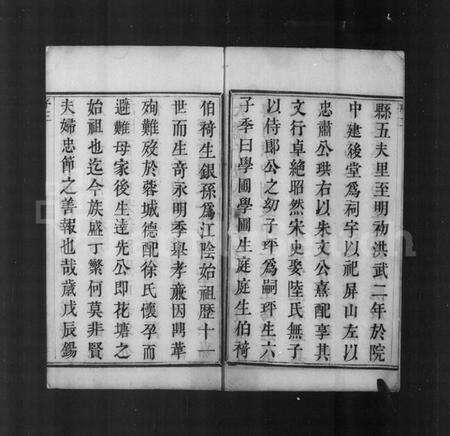 縣五夫里至明初洪武二年於院
中建後堂為祠宇以祀屏山左以
忠肅公珙右以朱文公熹配享其
文行卓絶昭然宋史娶陸氏無子
以侍郎公之幼子玶為嗣玶生六
子季曰學圃學圃生庭庭生伯䔲
伯䔲生銀孫為江陰始祖歷十一
世而生竒永明季舉孝廉因
殉難歿於蓉城德配徐氏懷孕而
避難母家後生達先公即花塘之
始祖也迄今族盛丁繁何莫非賢
夫婦忠節之善報也哉歲戊辰錫